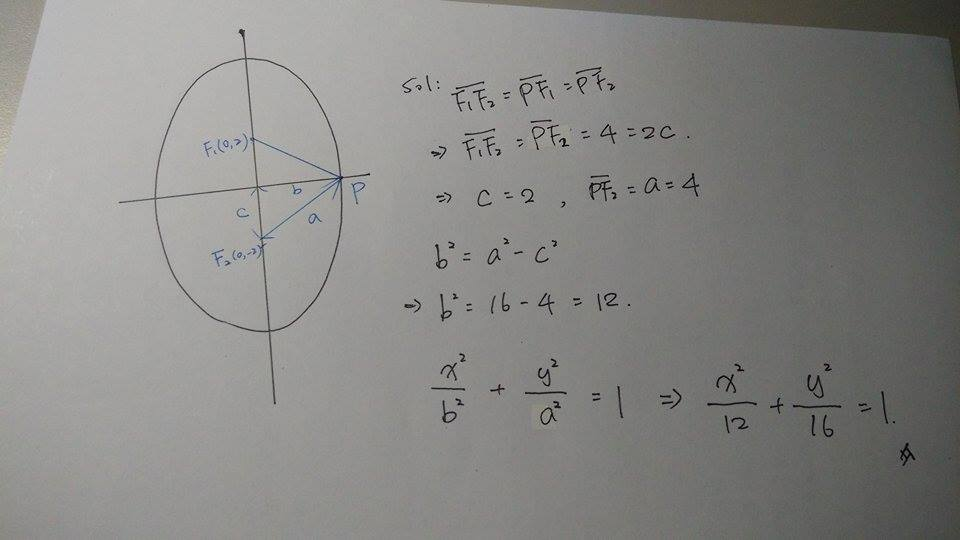 F₁(0,2)
b
P
c
a
F₂(0,-2)
Sol: F̅₁F̅₂ = P̅F̅₁ = P̅F̅₂
⇒ F̅₁F̅₂ = P̅F̅₂ = 4 = 2c.
⇒ c = 2 , P̅F̅₂ = a = 4
b² = a² - c²
⇒ b² = 16 - 4 = 12.
x²/b² + y²/a² = 1 ⇒ x²/12 + y²/16 = 1.